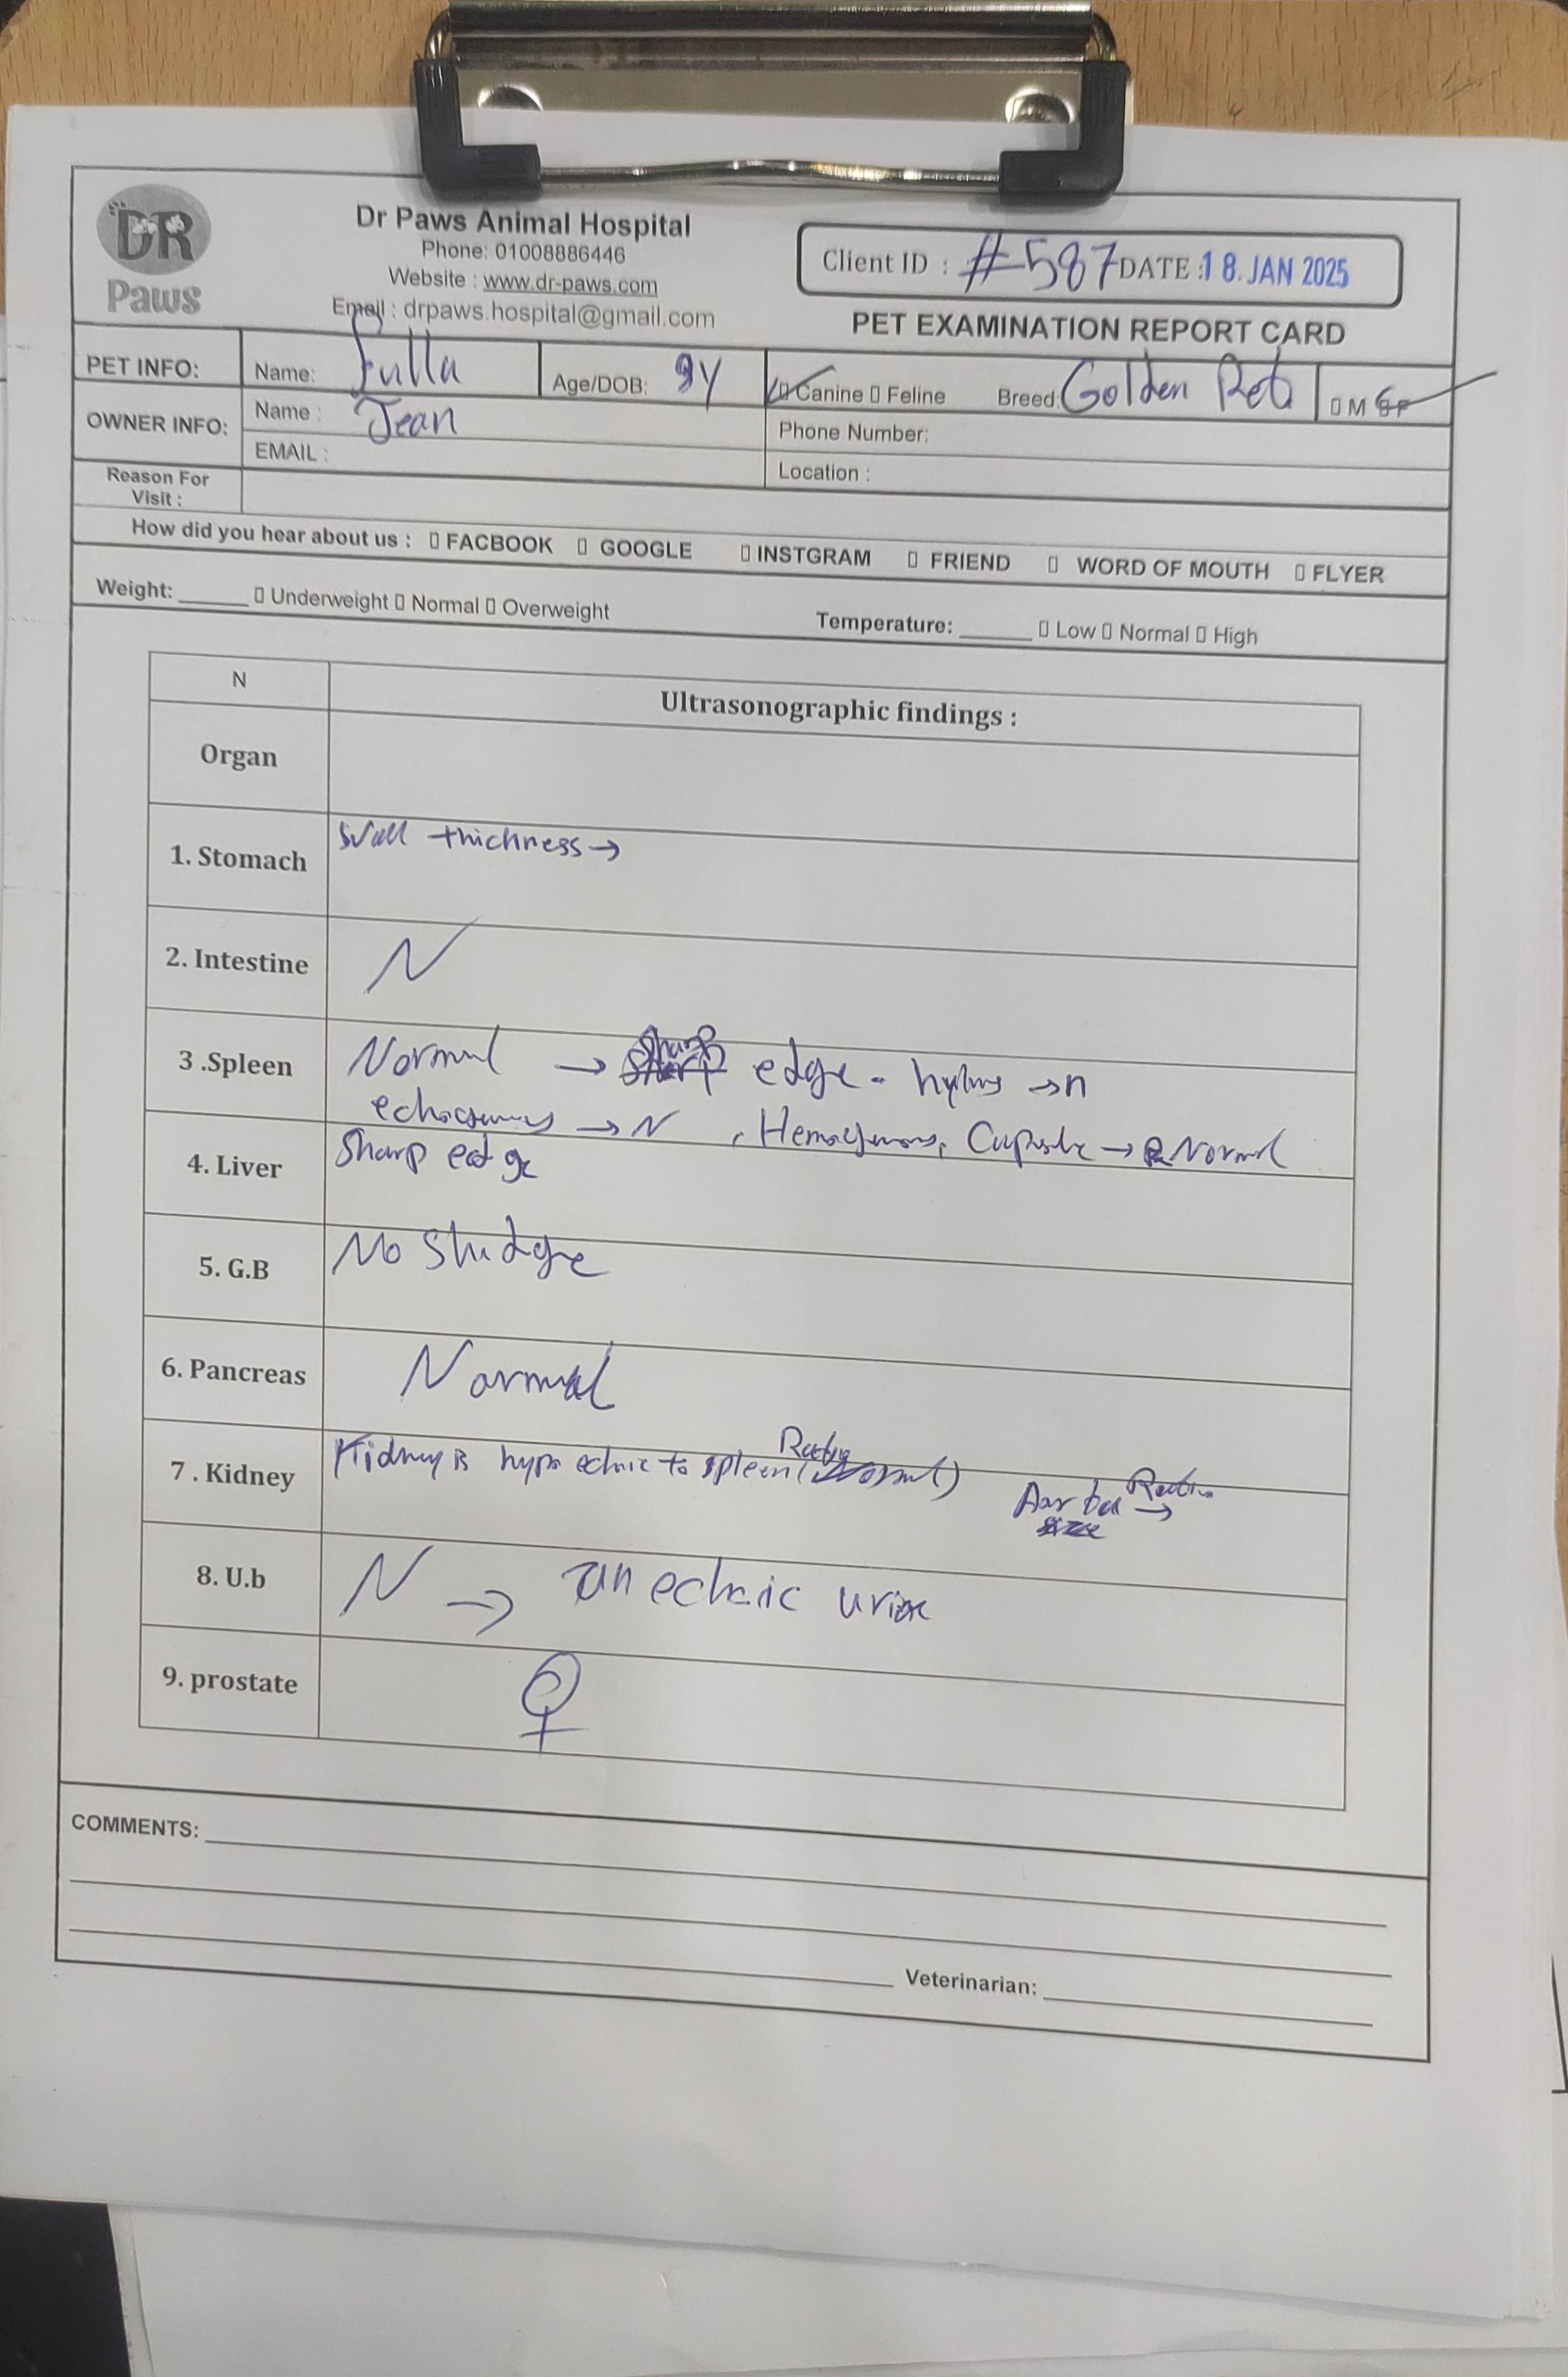 DR
Paws
Dr Paws Animal Hospital
Phone: 01008886446
Website : www.dr-paws.com
Email : drpaws.hospital@gmail.com
Client ID : #587 DATE : 18. JAN 2025
PET EXAMINATION REPORT CARD
PET INFO: Name: Age/DOB: 9Y Canine Feline Breed: Golden Ret M F
OWNER INFO: Name : Jean Phone Number:
EMAIL : Location :
Reason For
Visit :
How did you hear about us : FACBOOK GOOGLE INSTGRAM FRIEND WORD OF MOUTH FLYER
Weight: Underweight Normal Overweight Temperature: Low Normal High
N Ultrasonographic findings :
Organ
1. Stomach Wall thichness →
2. Intestine N
3 .Spleen Normal → Sharp edge - hylus → n
→ N , → Normal
4. Liver Sharp edge
5. G.B No Sludge
6. Pancreas Normal
7 . Kidney Kidney is hypo echoic to spleen
Aorta →
8. U.b N → an echoic urine
9. prostate ♀
COMMENTS:
Veterinarian: